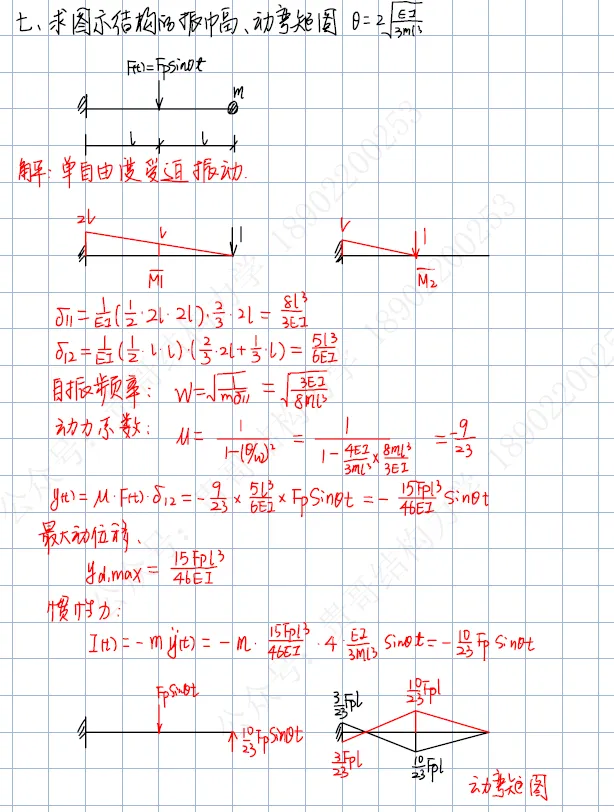 七、求图示结构的振幅、动弯矩图 θ=2√(EI/3ml³)
F(t)=Fpsinθt
m
l l
解: 单自由度受迫振动.
2l l 1 M̄1 l 1 M̄2
δ11=1/EI(1/2·2l·2l)·2/3·2l=8l³/3EI
δ12=1/EI(1/2·l·l)·(2/3·2l+1/3·l)=5l³/6EI
自振频率: W=√(1/mδ11)=√(3EI/8ml³)
动力系数: μ=1/(1-(θ/ω)²)=1/(1-4EI/3ml³×8ml³/3EI)=-9/23
y(t)=μ·F(t)·δ12=-9/23×5l³/6EI×FpSinθt=-15Fpl³/46EI Sinθt
最大动位移、
yd,max=15Fpl³/46EI
惯性力:
I(t)=-mÿ(t)=-m·15Fpl³/46EI·4·EI/3ml³ Sinθt=-10/23 Fp Sinθt
Fpsinθt 3/23Fpl 10/23Fpl
10/23FpSinθt
3/23Fpl 10/23Fpl
动弯矩图
公众号:青哥结构力学 18902200253